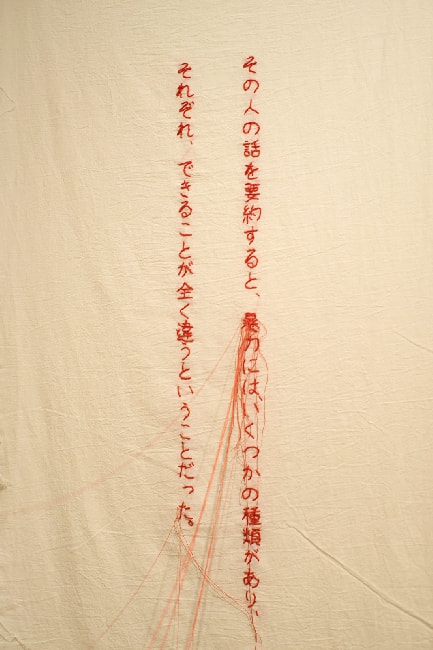 その人の話を要約すると、暴力には、いくつかの種類があり、
それぞれ、できることが全く違うということだった。